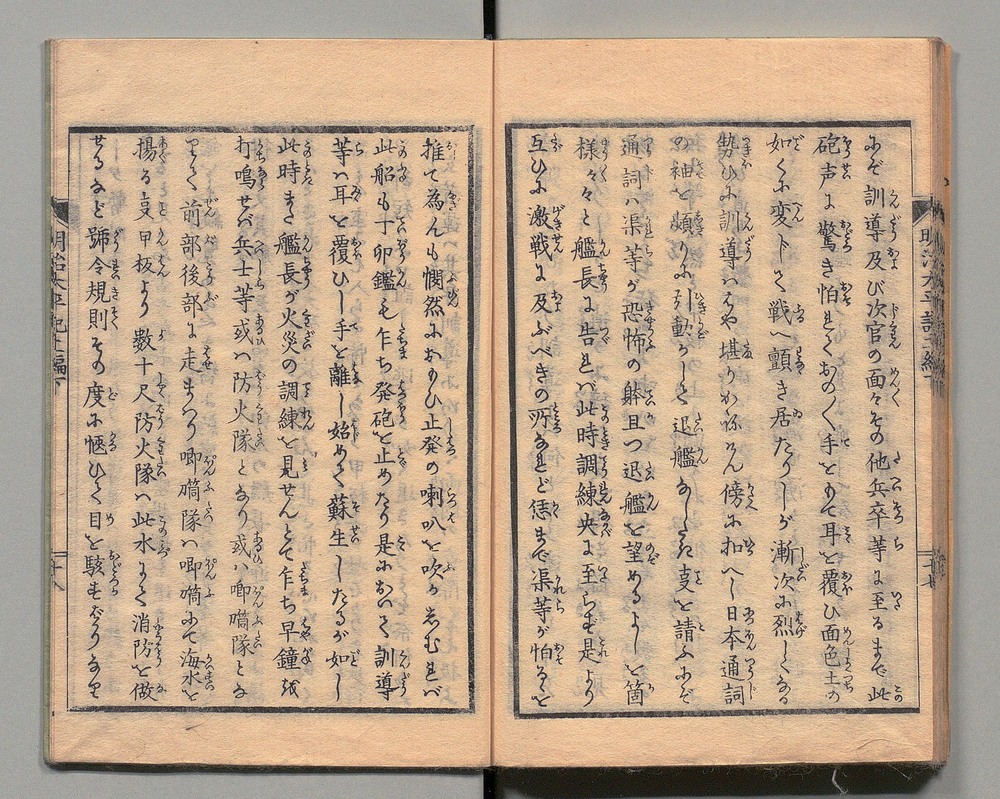 みぞ訓導及び次官の面々その他兵卒等に至るまで此
砲声に驚き怕れておの〳〵手をもて耳を覆ひ面色土の
如くに変じさて戦へ顫き居たりしが漸次に烈しくなる
勢ひに訓導はや堪りかねけん傍に扣へし日本通詞
の袖を頻りに引動かして退艦なしたき支を請ふにぞ
通詞ハ渠等が恐怖の躰且つ退艦を望めるよしを箇
様々々と艦長に告れバ此時調練央に至らず是より
互ひに激戦に及ぶべきの所なれど恁まで渠等が怕るゝを
推て為んも憫然におもひ止発の喇叭を吹かしむれバ
此船も丁卯鑑も乍ち発砲を止めたり是において訓導
等ハ耳を覆ひし手を離し始めて蘇生したるが如し
此時また艦長が火災の調練を見せんとて乍ち早鐘を
打鳴せバ兵士等或ハ防火隊となり或ハ喞筩隊とな
りて前部後部に走まつり喞筩隊ハ喞筩にて海水を
揚る支甲板より数十尺防火隊ハ此水にて消防を做
せるなど号令規則その度に愜ひて目を駭すばかりなり